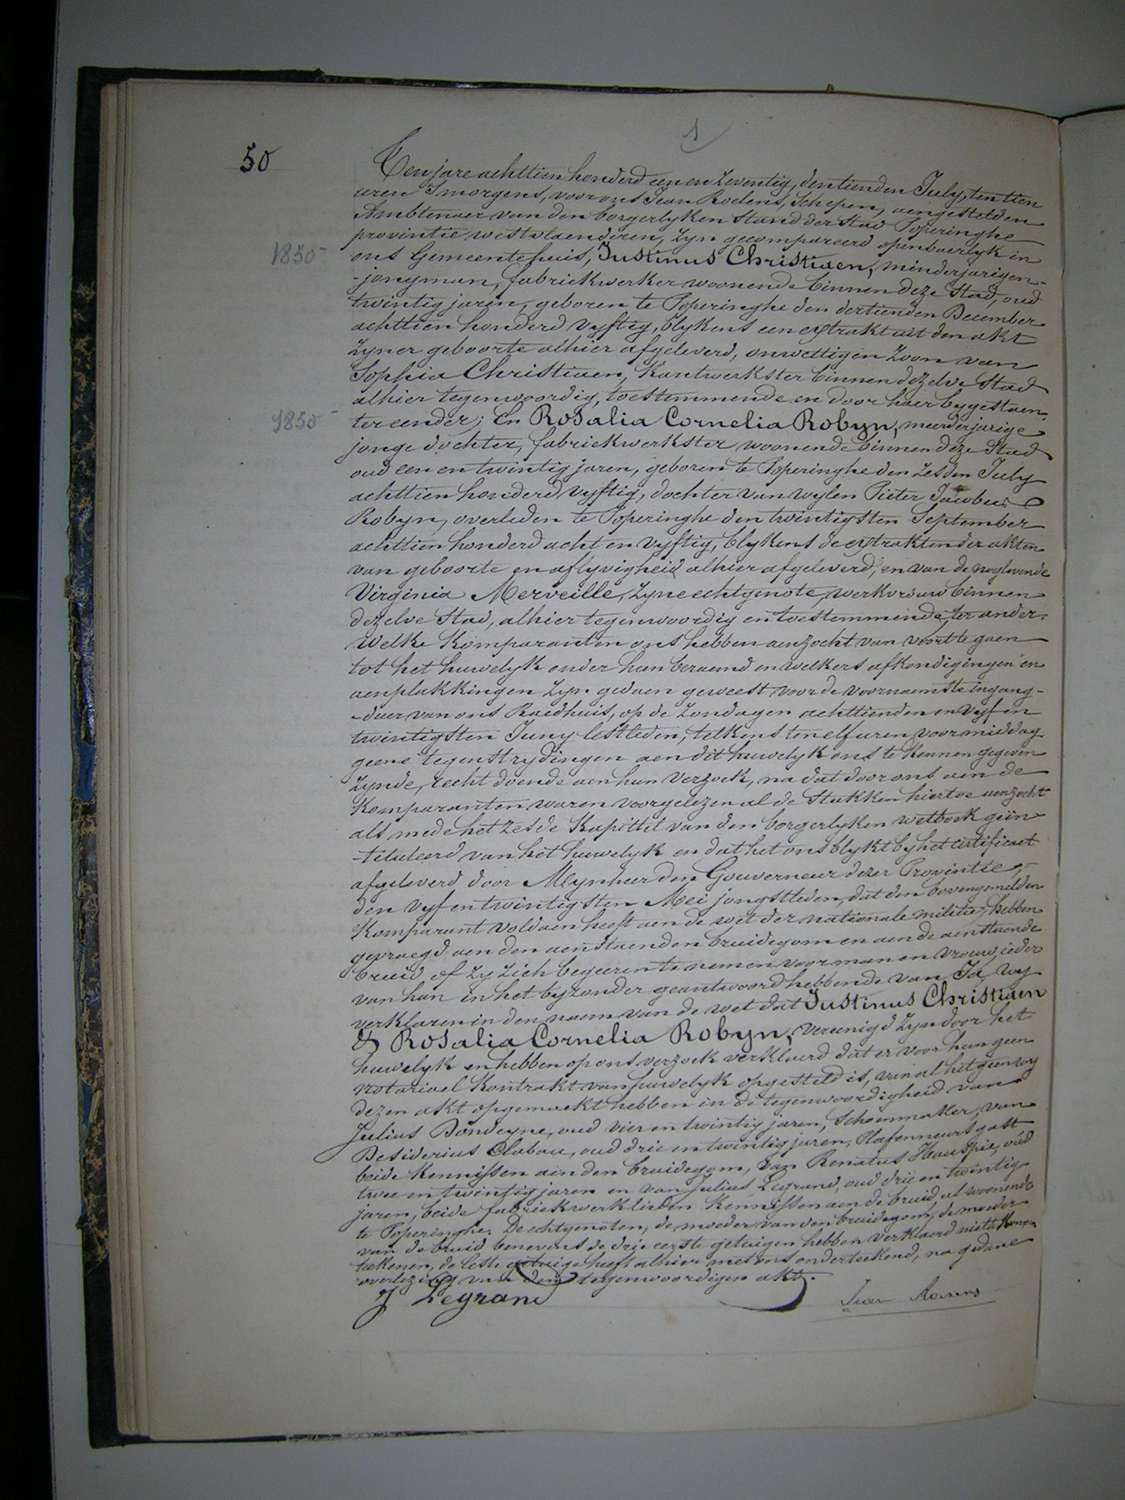 1
50
Ten jare achttien honderd een en zeventig, den tienden July, ten tien
uren 'smorgens, voor ons Jean Roelens, Schepen, aengestelden
Ambtenaer van den borgerlyken Stand der Stad Poperinghe
provintie westvlaenderen, zyn gecompareerd openbaerlyk in
1850
ons Gemeentehuis, Justinus Christiaen, minderjarigen
jongman, fabriekwerker woonende binnen deze Stad, oud
twintig jaren, geboren te Poperinghe den dertienden December
achttien honderd vyftig, blykens een extrakt uit den akt
zyner geboorte alhier afgeleverd, onwettigen zoon van
Sophia Christiaen, Kantwerkster binnen dezelve Stad
alhier tegenwoordig, toestemmende en door haer bygestaen
1850
ter eender; En Rosalia Cornelia Robyn, meerderjarige
jonge dochter, fabriekwerkster woonende binnen deze Stad
oud een en twintig jaren, geboren te Poperinghe den zesden July
achttien honderd vyftig, dochter van wylen Pieter Jacobus
Robyn, overleden te Poperinghe den twintigsten September
achttien honderd acht en vyftig, blykens de extrakten der akten
van geboorte en aflyvigheid alhier afgeleverd, en van de noglevende
Virginia Merveille, zyne echtgenote, werkvrouw binnen
dezelve Stad, alhier tegenwoordig en toestemmende, ter ander.
Welke Komparanten ons hebben aenzocht van voort te gaen
tot het huwelyk onder hun beraemd en welkers afkondigingen en
aenplakkingen zyn gedaen geweest voor de voornaemste ingang-
-deur van ons Raedhuis, op de zondagen achttienden en vyf en
twintigsten Juny lestleden, telkens ten elf uren voormiddag
geene tegenstrydingen aen dit huwelyk ons te Kennen gegeven
zynde, recht doende aen hun verzoek, na dat door ons aen de
Komparanten waren voorgelezen al de Stukken hiertoe aenzocht
als mede het zesde Kapittel van den borgerlyken wetboek geïn
-tituleerd van het huwelyk en dat het ons blykt by het certificaet
afgeleverd door Mynheer den Gouverneur dezer Provintie,
den vyf en twintigsten Mei jongstleden, dat den bovengemelden
Komparant voldaen heeft aen de wet der nationale militie; hebben
gevraegd aen den aenstaenden bruidegom en aen de aenstaende
bruid of zy zich begeeren te nemen voor man en vrouw, ieder
van hun in het byzonder geantwoord hebbende van Ja, wy
verklaren in den naem van de wet dat Justinus Christiaen
& Rosalia Cornelia Robyn, vereenigd zyn door het
huwelyk en hebben op ons verzoek verklaerd dat er voor hun geen
notarieel Kontrakt van huwelyk opgesteld is, van al het geene wy
dezen akt opgemaekt hebben in de tegenwoordigheid van
Julius Dondeyne, oud vier en twintig jaren, Schoenmaker, van
Desiderius Clabau, oud drie en twintig jaren, Plafonneursgast
beide Kennissen aen den bruidegom, van Renatus Hauspie, oud
twee en twintig jaren en van Julius Legrand, oud drie en twintig
jaren, beide fabriekwerklieden Kennissen aen de bruid, al woonende
te Poperinghe. De echtgenoten, de moeder van den bruidegom, de moeder
van de bruid benevens de drie eerste getuigen hebben verklaerd niet te konnen
teekenen, de leste getuige heeft alhier met ons onderteekend, na gedane
overlezing van den tegenwoordigen akt.
J Legrand
Jean Roelens